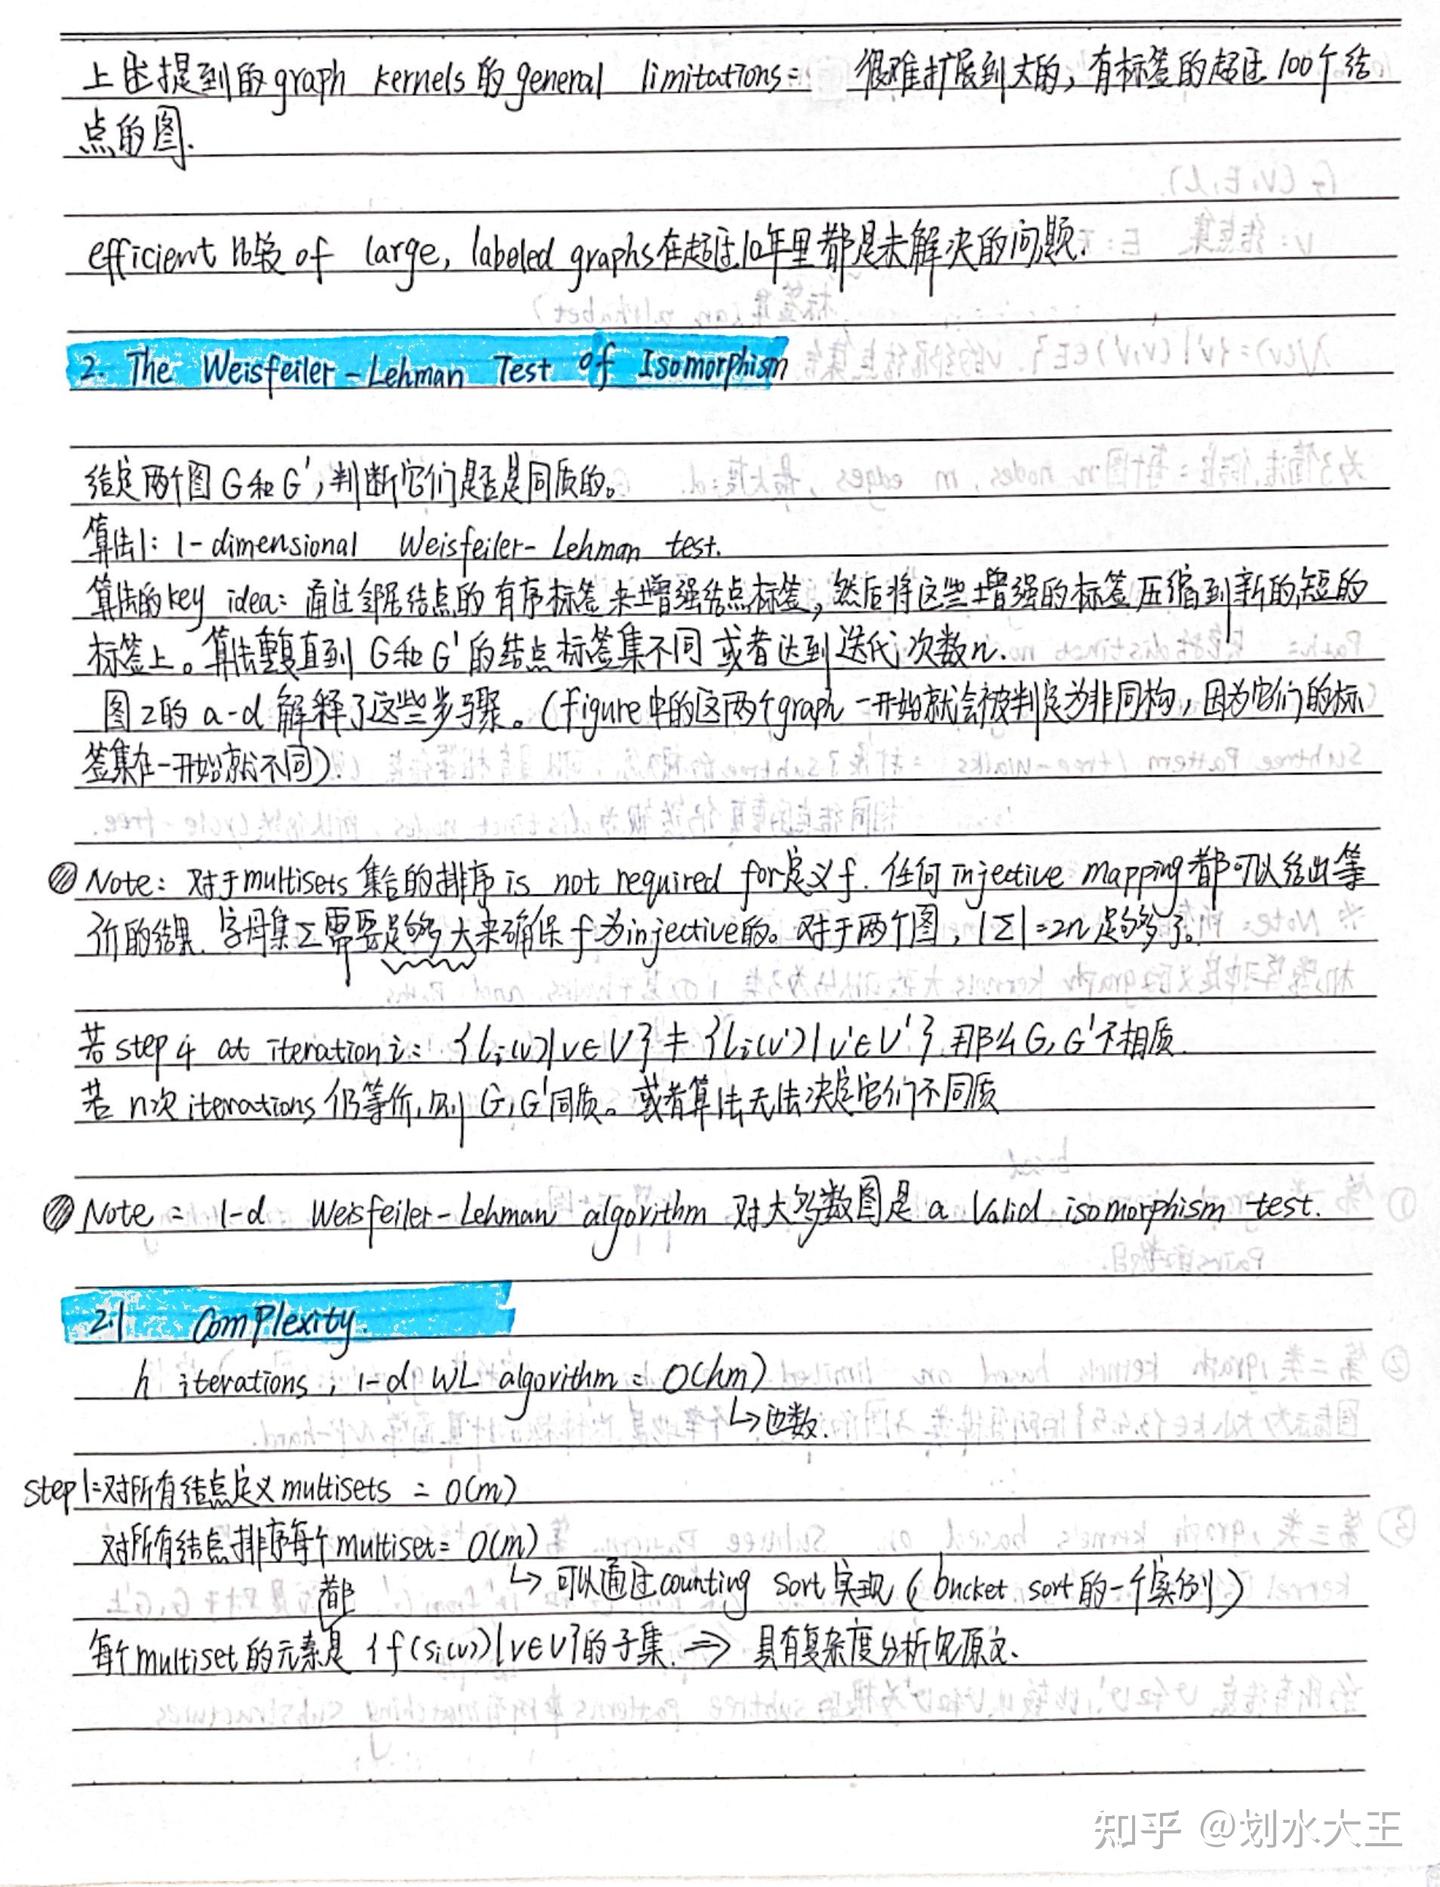 上述提到的graph kernels的general limitations: 很难扩展到大的,有标签的超过100个结
点的图.
efficient 比较 of large, labeled graphs在超过10年里都是未解决的问题.
2. The Weisfeiler-Lehman Test of Isomorphism
给定两个图G和G',判断它们是否是同质的。
算法1: 1-dimensional Weisfeiler-Lehman test.
算法的key idea: 通过邻居结点的有序标签来增强结点标签,然后将这些增强的标签压缩到新的,短的
标签上。算法重复直到G和G'的结点标签集不同或者达到迭代次数n.
图2的a-d解释了这些步骤。(figure中的这两个graph一开始就会被判定为非同构,因为它们的标
签集在一开始就不同).
Note: 对于multisets集合的排序is not required for定义f. 任何injective mapping都可以给出等
价的结果. 字母集Σ需要足够大来确保f为injective的。对于两个图, |Σ|=2n足够了。
若step 4 at iteration i: {li(v)|v∈V}≠{li(v')|v'∈V'}.那么G,G'不相质.
若n次iterations仍等价,则G,G'同质。或者算法无法决定它们不同质
Note: 1-d Weisfeiler-Lehman algorithm 对大多数图是a Valid isomorphism test.
2.1 Complexity.
h iterations, 1-d WL algorithm = O(hm)
↳边数.
step1:对所有结点定义multisets = O(m)
对所有结点排序每个multiset= O(m)
↳可以通过counting sort实现(bucket sort的一个实例)
每个multiset的元素都是{f(si(v))|v∈V}的子集. ⇒ 具有复杂度分析见原文.
知乎 @划水大王